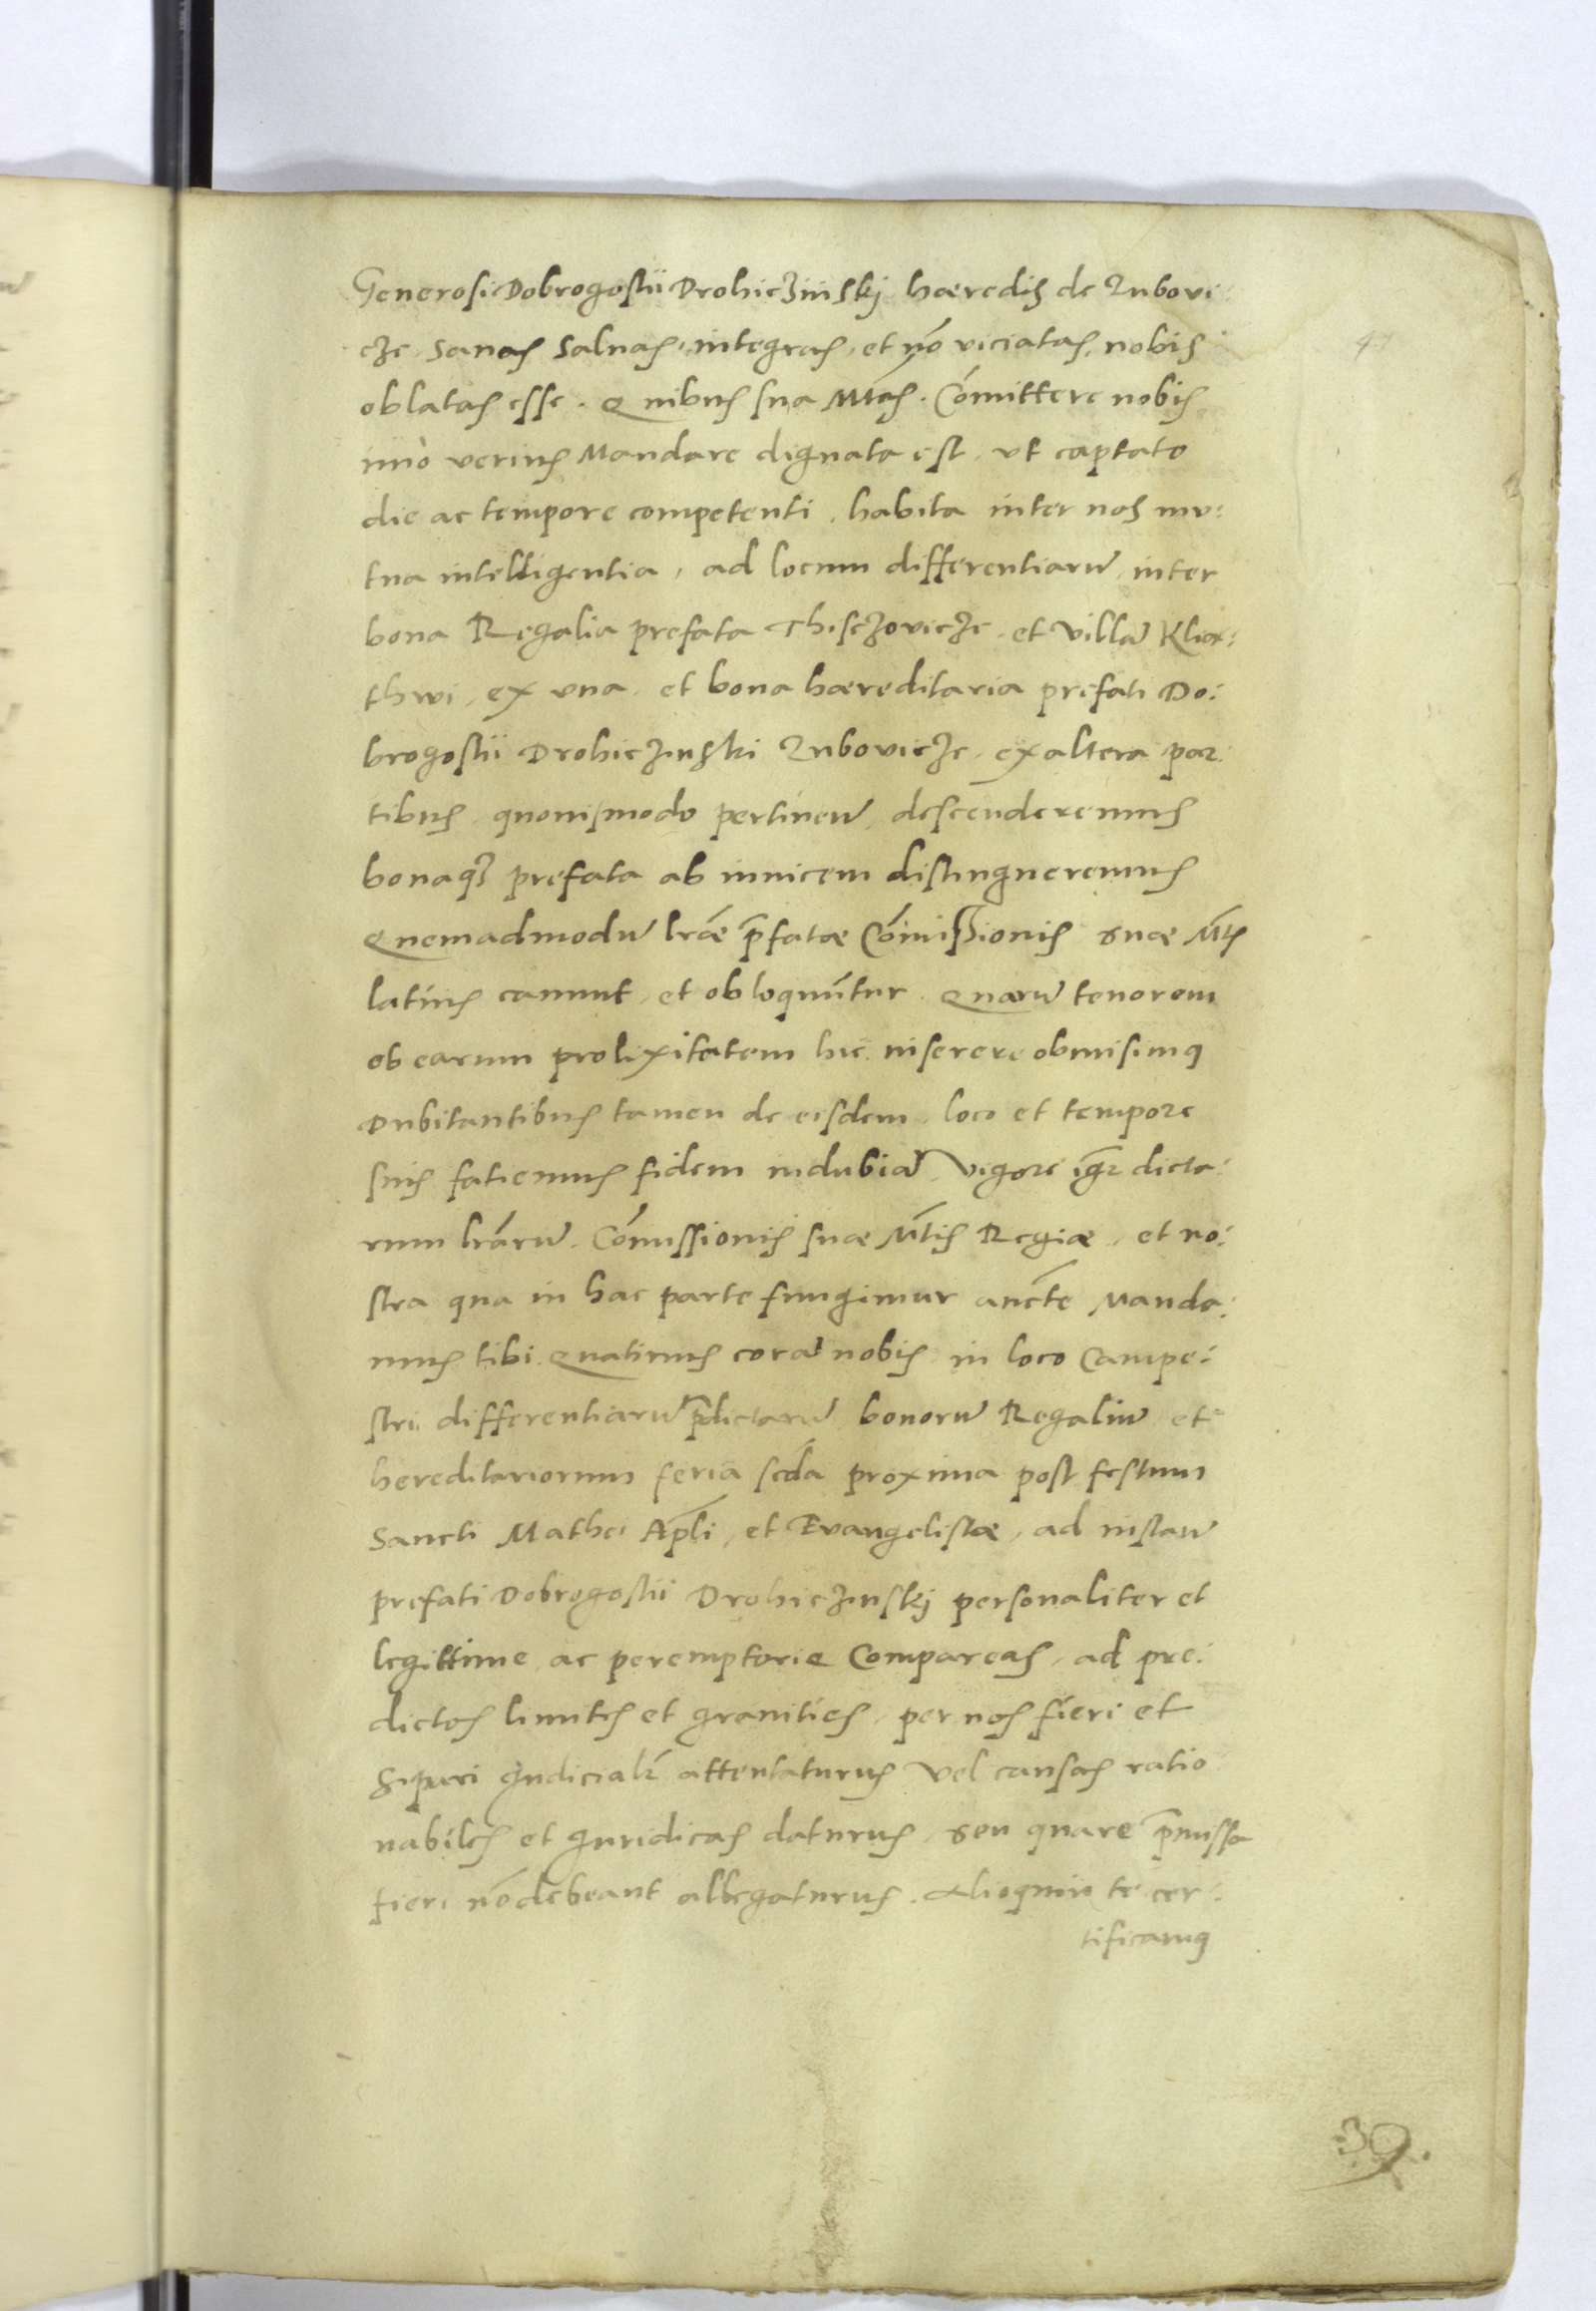 Generosi Dobrogostii Drohiczinskj haeredis de Zubovi:
cze. Sanas Salvas, integras, et nō viciatas, nobis
47
oblatas esse. Quibus sua Mtas. Cōmittere nobis
imò verius Mandare dignata est, ut captato
die ac tempore competenti, habita inter nos mu:
tua intelligentia, ad locum differentiarū, inter
bona Regalia prefata Thisczovicze, et villā Klia:
thwi, ex una, et bona haereditaria prefati Do:
brogostii Drohiczinski Zubovicze, ex altera par
tibus, quovismodo pertinen̄, descenderemus
bonaq₃ prefata ab invicem distingueremus
Quemadmodū lr̄ae p̄fatae Cōmissionis suae Mtis
latius canunt, et obloquūntur. Quarū tenorem
ob earum prolixitatem hic inserere obmisimus
Dubitantibus tamen de eisdem, loco et tempore
suis fatiemus fidem indubiā, Vigore igr̄ dicta:
rum lr̄arū. Cōmissionis suae Mtis Regiae, et no:
stra qua in hac parte fungimur auc̄te Manda:
mus tibi Quatinus corā nobis in loco Campe:
stri differentiarū p̄dictarū bonorū Regaliū et
hereditariorum feria scda proxima post festum
Sancti Mathei Apl̄i, et Evangelistae, ad instan̄
prefati Dobrogostii Drohiczinskj personaliter et
legittime ac peremptorie Compareas, ad pre:
dictos limites et granities, per nos fieri et
sipari Judicialr̄ attentaturus Vel causas ratio
nabiles et Juridicas daturus, seu quare p̄missa
fieri nō debeant allegaturus. Alioquin te cer:
tificamus
39.